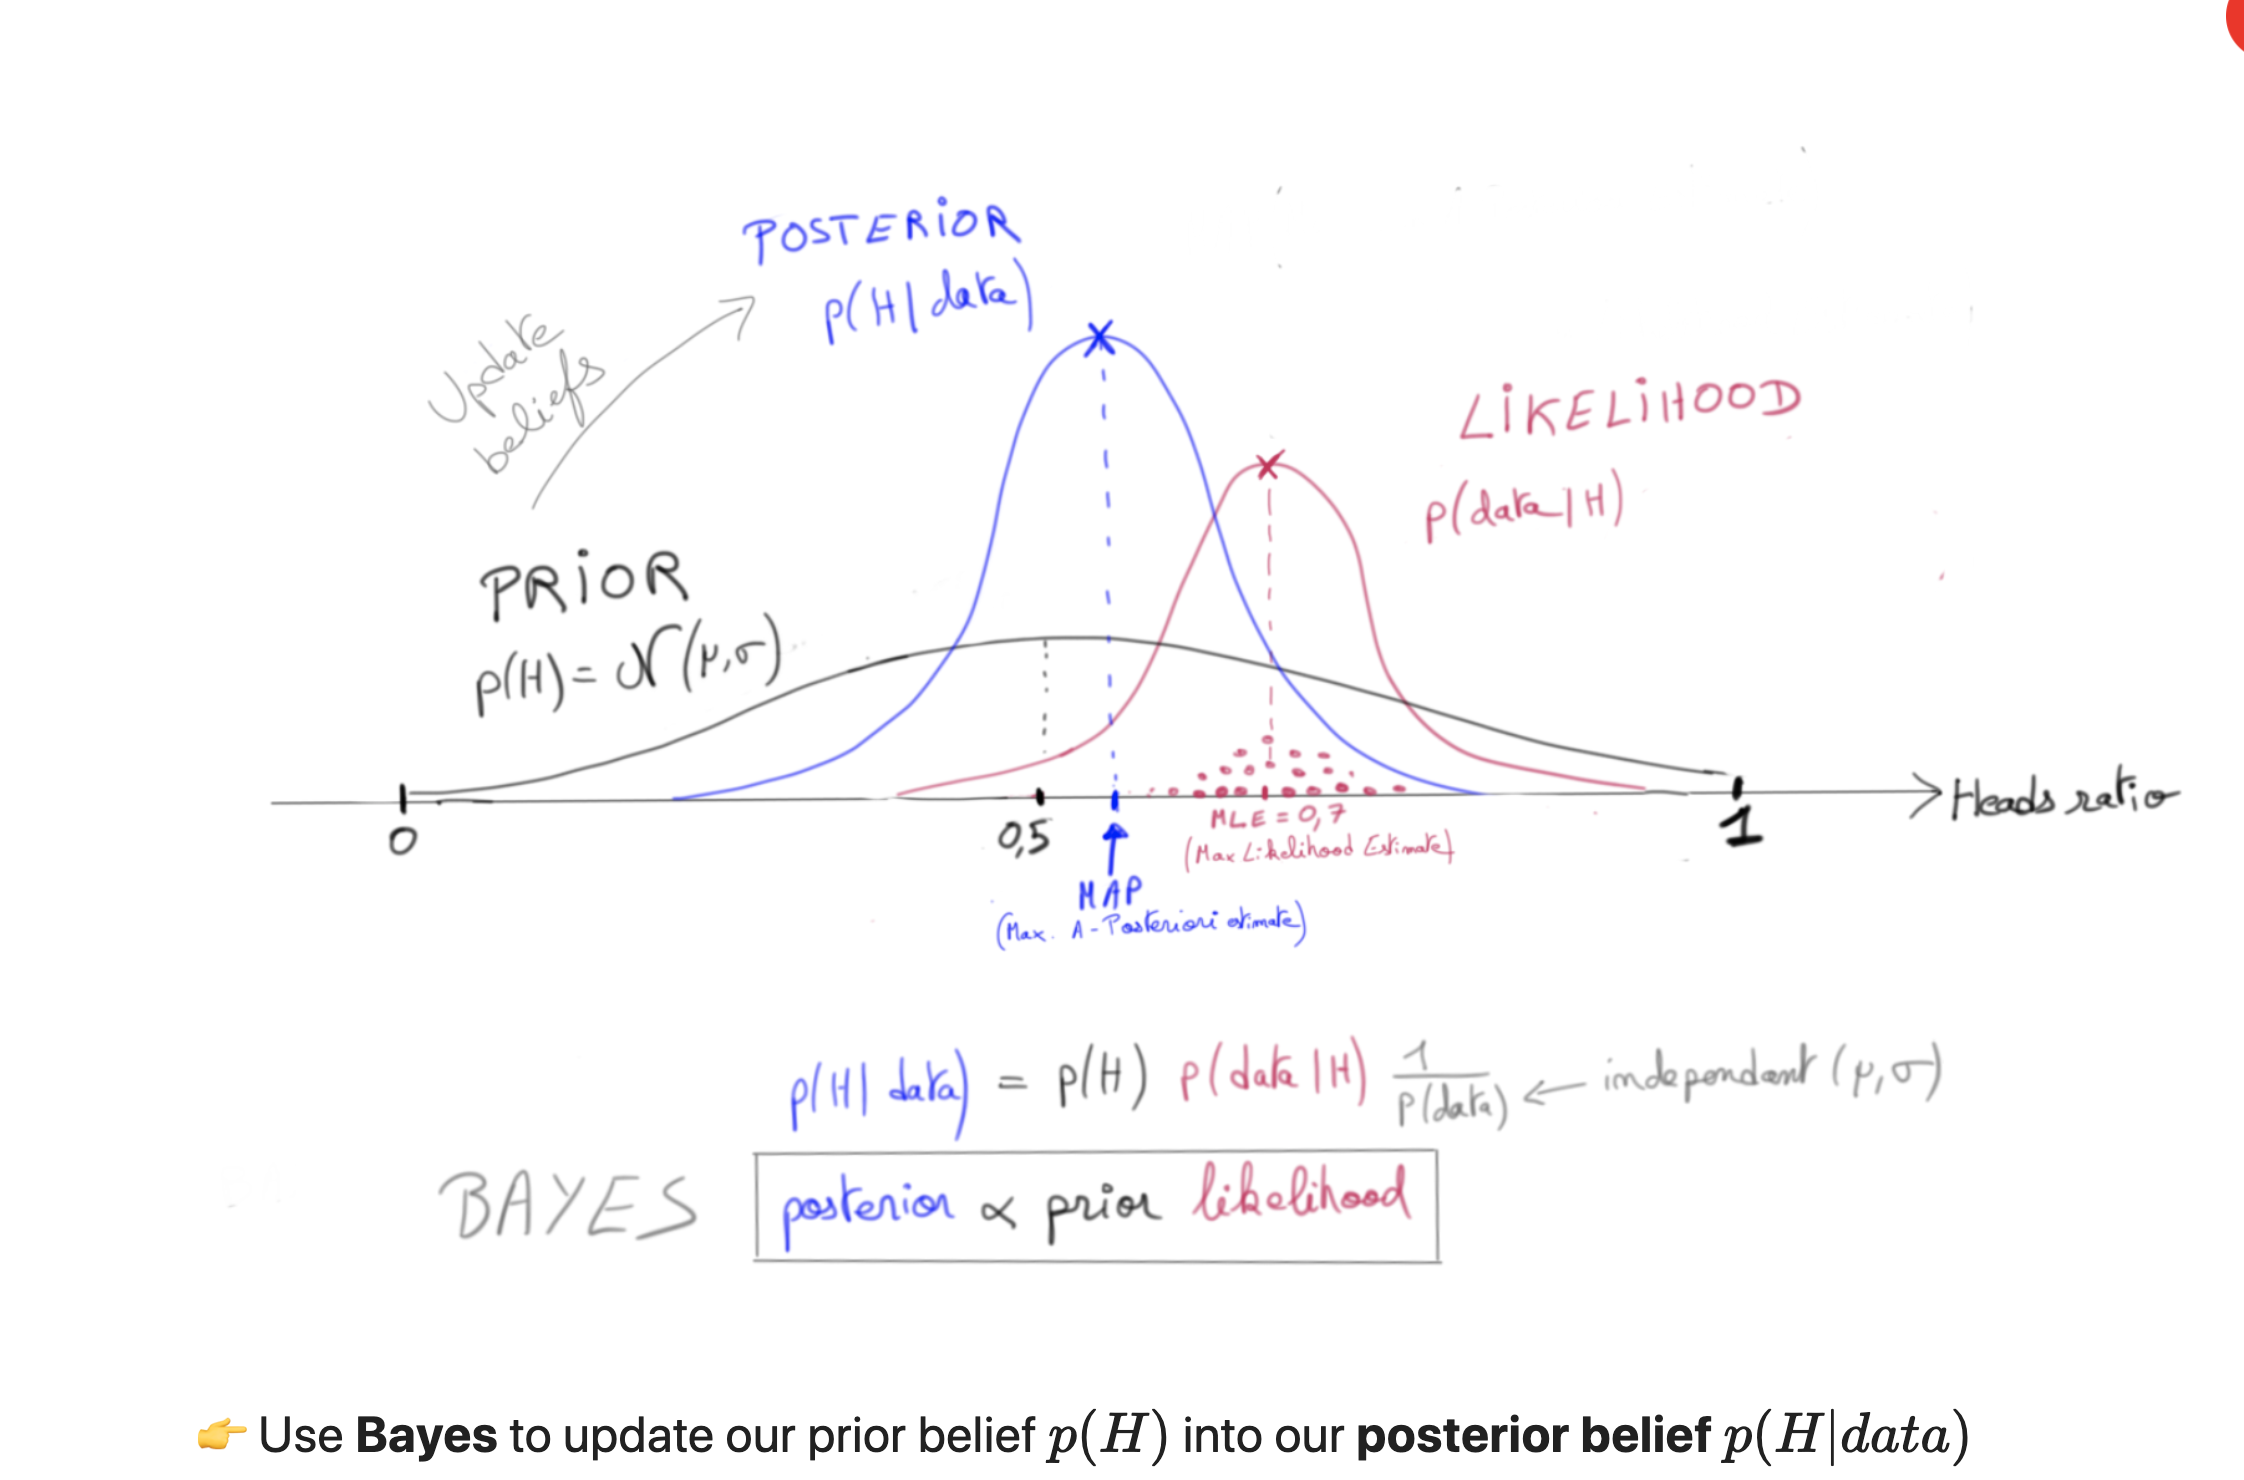 POSTERIOR
p(H|data)
Update
beliefs
LIKELIHOOD
p(data|H)
PRIOR
p(H) = N(μ,σ)
0
0,5
1
Heads ratio
MLE = 0,7
(Max Likelihood Estimate)
MAP
(Max. A-Posteriori estimate)
p(H|data) = p(H) p(data|H) 1/p(data) ← independant (μ,σ)
BAYES posterior ∝ prior likelihood
👉 Use Bayes to update our prior belief p(H) into our posterior belief p(H|data)